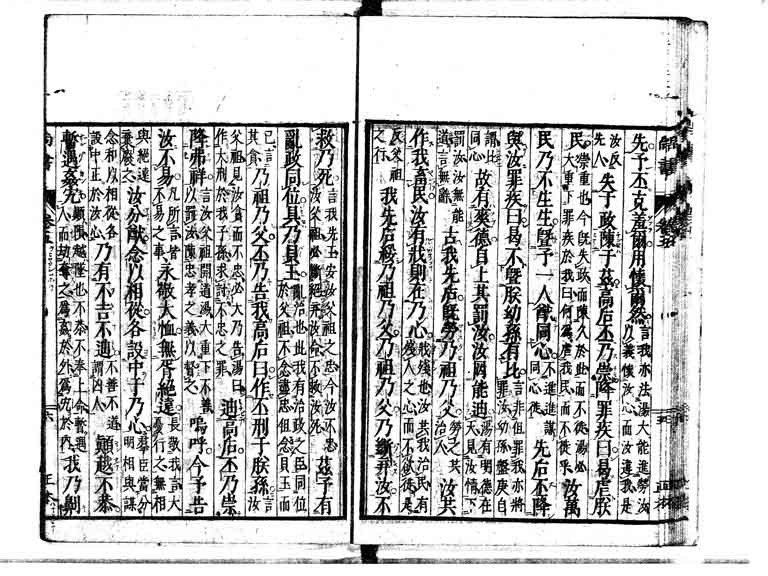 先予丕克羞爾用懷爾然言我亦法湯大能進勞汝以義懷汝心而汝違我是
汝反先人失于政陳于茲高后丕乃崇降罪疾曰曷虐朕
民崇重也今既失政而陳久於此而不徙湯必大重下罪疾於我曰何為虐我民而不徙乎汝萬
民乃不生生暨予一人猷同心不進進謀同心徙先后丕降
與汝罪疾曰曷不暨朕幼孫有比言非但罪我亦將罪汝幼孫盤庚自
謂比同心故有爽德自上其罰汝汝罔能迪湯有明德在天見汝情下
罰汝汝無能道言無辭古我先后既勞乃祖乃父勞之共治人汝共
作我畜民汝有戕則在乃心戕殘也汝共我治民有殘人之心而不欲徙是
反父祖之行我先后綏乃祖乃父乃祖乃父乃斷棄汝不
救乃死言我先王安汝父祖之忠今汝不忠汝父祖必斷絕棄汝命不救汝死茲予有
亂政同位具乃貝玉亂治也此我有治政之臣同位於父祖不念盡忠但念貝玉而
已言其貪乃祖乃父丕乃告我高后曰作丕刑于朕孫言汝
父祖見汝貪而不忠必大乃告湯曰作大刑於我子孫求討不忠之罪迪高后丕乃崇
降弗祥言汝父祖開道湯大重下不善以罰汝陳忠孝之義以督之嗚呼今予告
汝不易凡所言皆不易之事永敬大恤無胥絕遠長敬我言大憂行之無相
與絕遠棄廢之汝分猷念以相從各設中于乃心群臣當分明相與謀
念和以相從各設中正於汝心乃有不吉不迪不善不道謂凶人顛越不恭
暫遇姦宄顛隕越墜也不恭不奉上命暫遇人而劫奪之為姦於外為宄於內我乃劓
尚書 卷五 六 正本